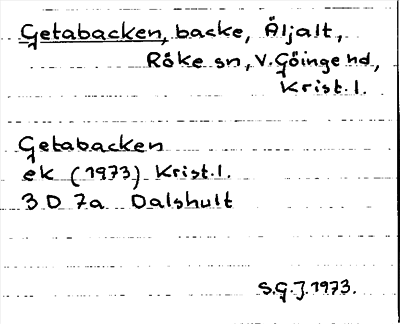 Getabacken, backe, Äljalt,
Röke sn, V. Göinge hd,
Krist. l.
Getabacken
ek (1973) Krist. l.
3 D 7a Dalshult
S.G.J. 1973.